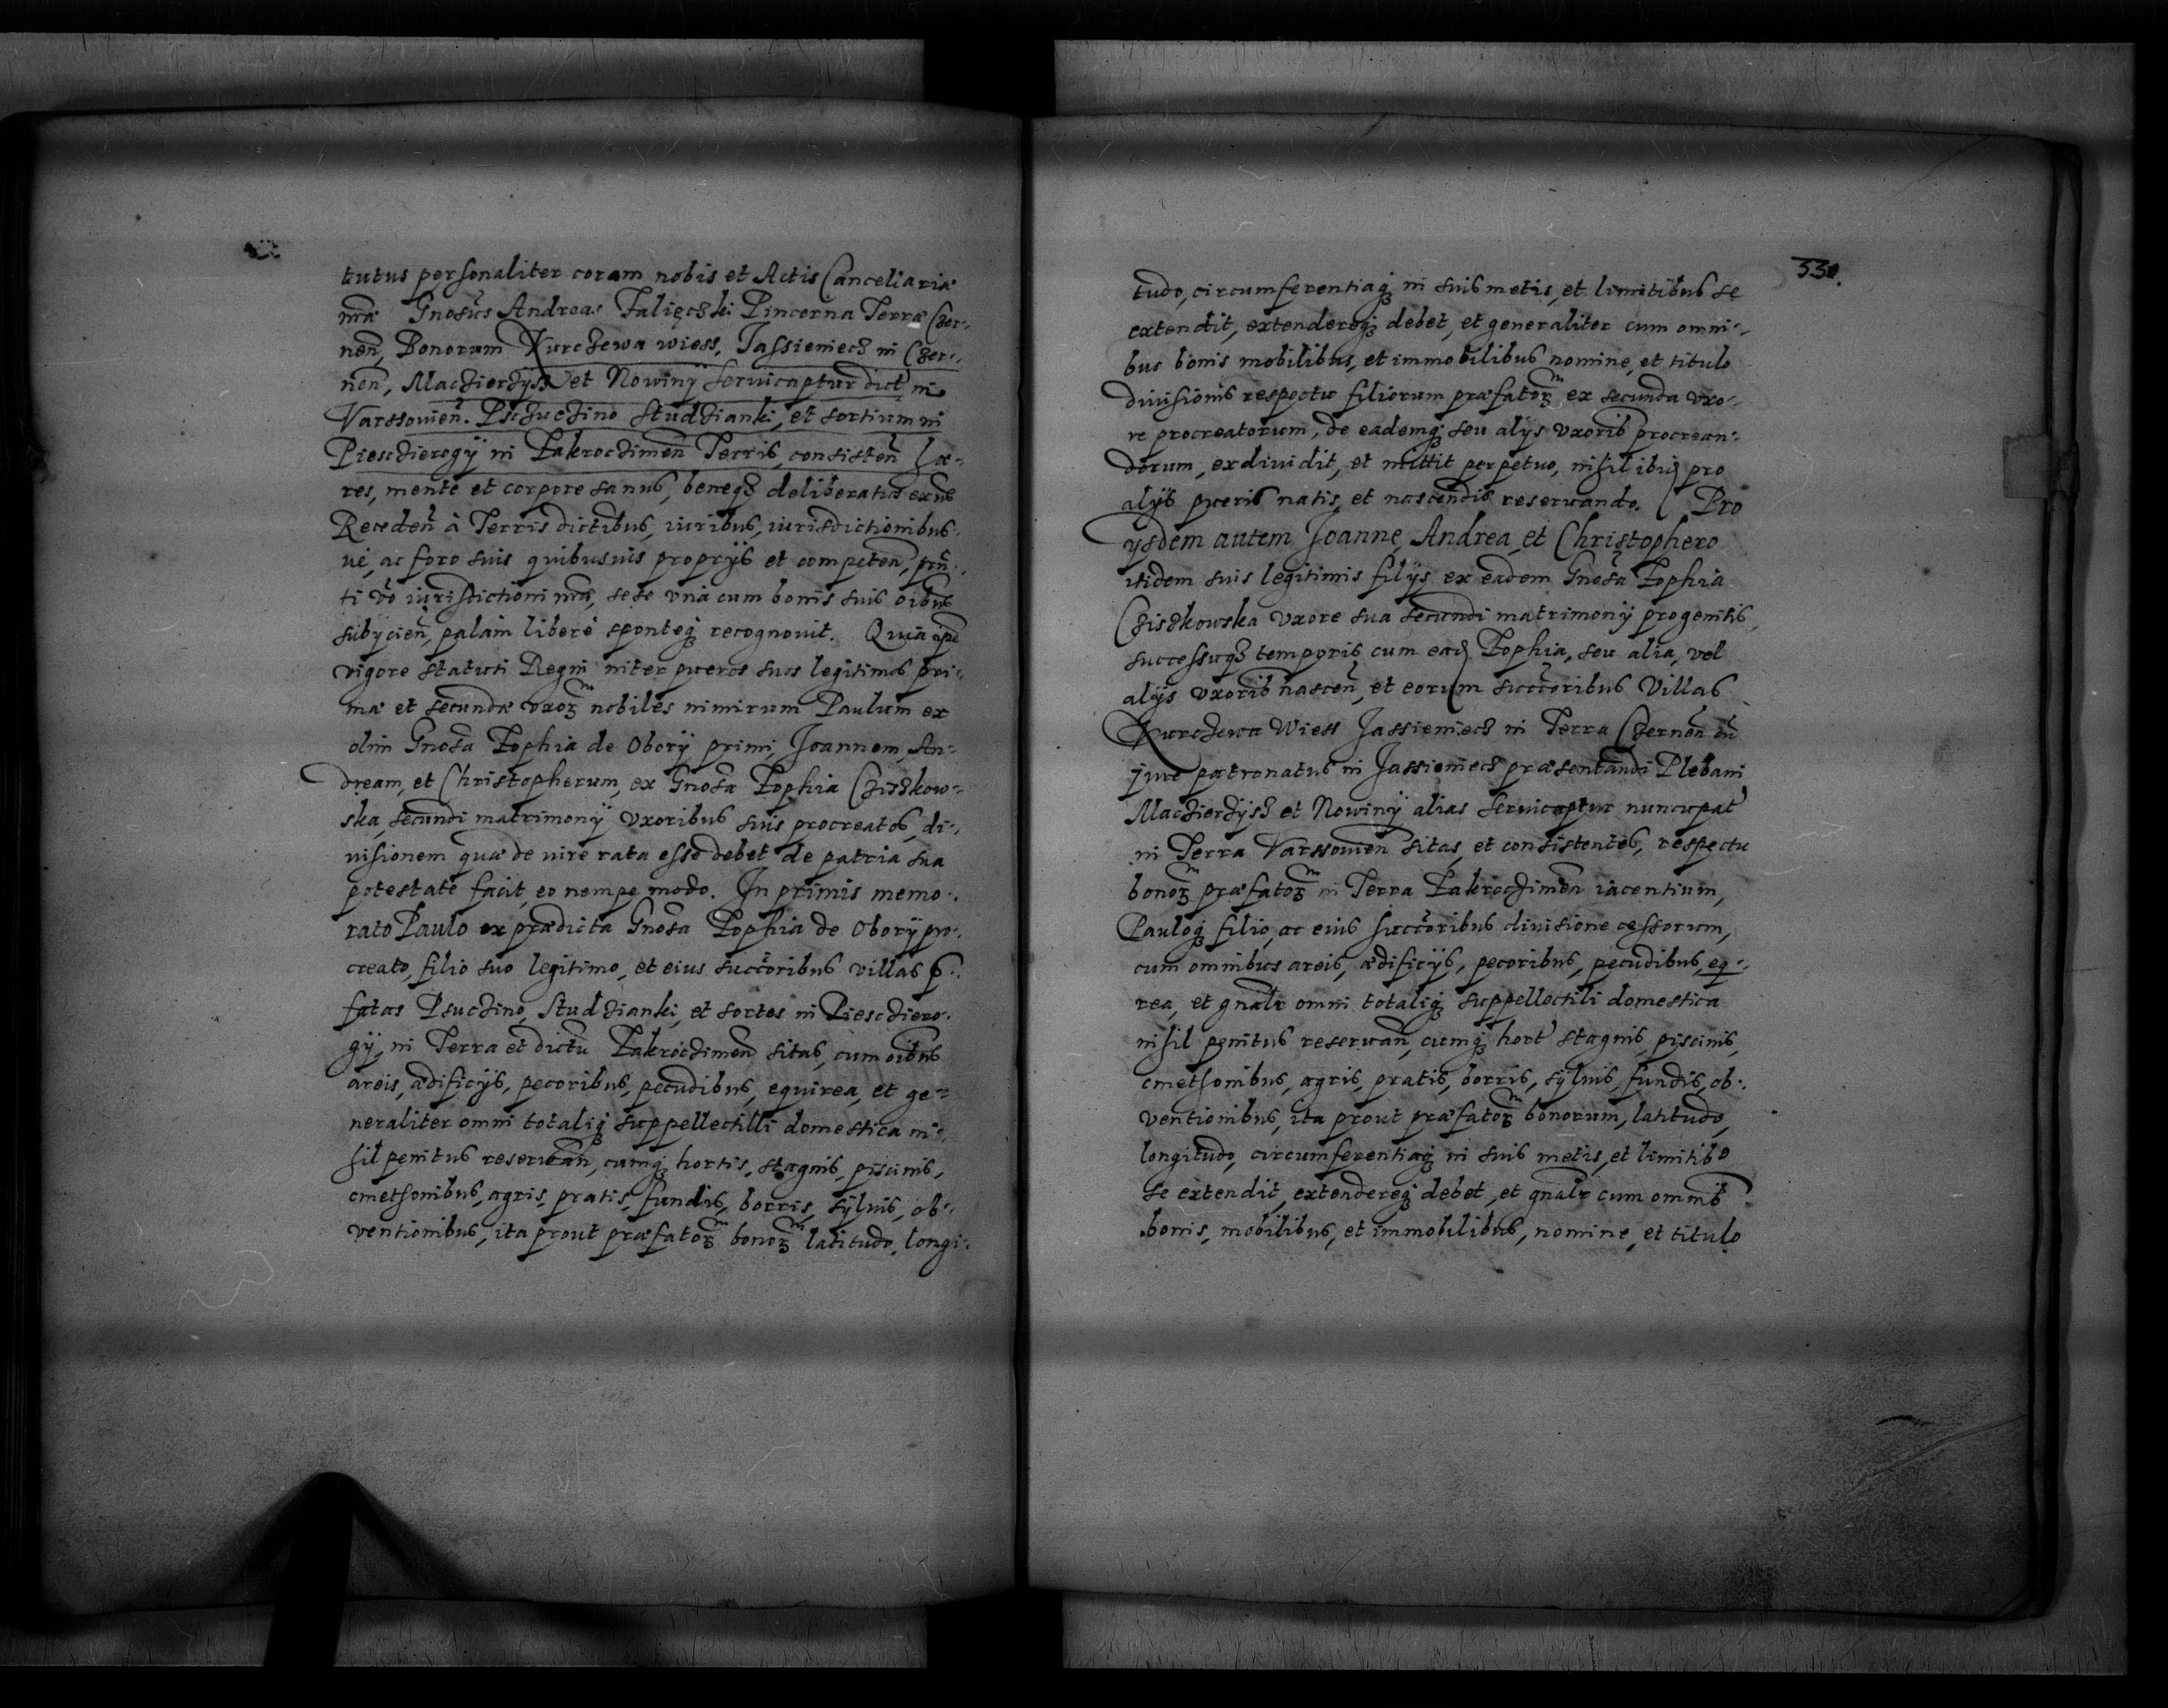 tutus personaliter coram nobis et Actis Cancellariæ
nr̃æ Gnosus Andreas Falięczki Pincerna Terræ Czer-
nen̄, Bonorum Kurczewa wiess, Jassieniecz in Czer-
nen̄, Maczierzÿsz et Nowinÿ Servicaptur dict in
Varssovien̄. Psczuczino Studzianki, et sortium in
Piesczierogÿ in Zakroczimen̄ Terris, consisten̄ Hæ-
res, mente et corpore sanus, beneqȝ deliberatus exn̄s
Receden̄ à Terris dictibus, iuribus, iurisdictionibus-
ué, ac foro suis quibusuis proprÿs et competen̄, prn̄-
ti vō iurisdictioni nrā, sese vnà cum bonis suis oībus
subÿcien̄, palàm liberè sponteqȝ recognovit. Quia ipe
vigore statuti Regni inter pueros suos legitimos pri-
mæ et secundæ vxoꝝ nobiles nimirum Paulum ex
olim Gnosa Zophia de Oborÿ primi, Joannem, An-
dream, et Christopherum, ex Gnosa Zophia Cziszkow-
ska, secundi matrimonÿ vxoribus suis procreatos, di-
uisionem quæ de iure rata esse debet de patria sua
potestate facit, eo nempe modo. In primis memo-
rato Paulo ex prædicta Gnosa Zophia de Oborÿ pro-
creato, filio suo legitimo, et eius succ̄oribus villas p̱-
fatas Psuczino, Studzianki, et sortes in Piescziero-
gÿ, in Terra et dictu Zakroczimen̄ sitas, cum oībus
areis, ædificÿs, pecoribus, pecudibus, equirea, et ge-
neraliter omni totaliqȝ suppellectilli domestica ni-
hil penitus reseruan̄, cumqȝ hortis, stagnis, piscinis,
cmethonibus, agris, pratis, fundis, borris, sÿluis, ob-
ventionibus, ita prout præfatoꝝ bonoꝝ latitudo, longi-
330.
tudo, circumferentiaqȝ in suis metis, et limitibus se
extendit, extendereqȝ debet, et generaliter cum omni-
bus bonis mobilibus, et immobilibus nomine, et titulo
diuisionis respectu filiorum præfatoꝝ ex secunda vxo-
re procreatorum, de eademqȝ seu alÿs vxorib procrean-
dorum, exdiuidit, et mittit perpetuo, nihil ibidē pro
alÿs pueris natis, et nascendis reseruando. Pro
ÿsdem autem Joanne, Andrea, et Christophero
itidem suis legitimis filÿs ex eadem Gnosa Zophia
Cziszkowska vxore sua secundi matrimonÿ progenitis,
successuqȝ temporis cum eadē Zophia, seu alia, vel
alÿs vxorib nascen̄, et eorum succ̄oribus Villas
Kurczewa Wiess Jassieniecz in Terra Czernen̄ cū
jure patronatus in Jassieniecz præsentandi Plebani,
Maczierzÿsz et Nowinÿ alias servicaptur nuncupat
in Terra Varssovien̄ sitas, et consistentes, respectu
bonoꝝ præfatoꝝ in Terra Zakroczimen̄ iacentium,
Pauloqȝ filio, ac eius succ̄oribus diuisione cessorum,
cum omnibus areis, ædificÿs, pecoribus, pecudibus, eq-
rea, et gnalr omni totaliqȝ suppellectili domestica
nihil penitus reseruan̄, cumqȝ hort stagnis, piscinis,
cmethonibus, agris, pratis, borris, sÿluis, fundis, ob-
ventionibus, ita prout præfatoꝝ bonorum, latitudo,
longitudo, circumferentiaqȝ in suis metis, et limitib9
se extendit, extendereqȝ debet, et gnalr cum omnib
bonis, mobilibus, et immobilibus, nomine, et titulo